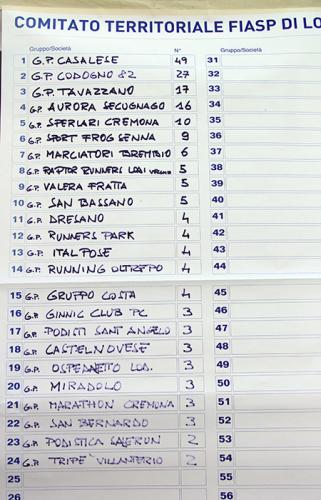 COMITATO TERRITORIALE FIASP DI LO
Gruppo/Società N° Gruppo/Società
1 G.P. CASALESE 49 31
2 G.P. CODOGNO 82 27 32
3 G.P. TAVAZZANO 17 33
4 G.P. AURORA SECUGNAGO 16 34
5 G.P. SPERLARI CREMONA 10 35
6 G.P. SPORT FROG SENNA 9 36
7 G.P. MARCIATORI BREMBIO 6 37
8 G.P. RAPTOR RUNNERS LODI 5 38
9 G.P. VALERA FRATTA 5 39
10 G.P. SAN BASSANO 5 40
11 G.P. DRESANO 4 41
12 G.P. RUNNERS PARK 4 42
13 G.P. ITALPOSE 4 43
14 G.P. RUNNING OLTREPO 4 44
15 G.P. GRUPPO COSTA 4 45
16 G.P. GINNIC CLUB PC 3 46
17 G.P. PODISTI SANT ANGELO 3 47
18 G.P. CASTELNOVESE 3 48
19 G.P. OSPEDALETTO LOD. 3 49
20 G.P. MIRADOLO 3 50
21 G.P. MARATHON CREMONA 3 51
22 G.P. SAN BERNARDO 3 52
23 G.P. PODISTICA 2 53
24 G.P. TRIPE' VILLANTERIO 2 54
25 55
26 56